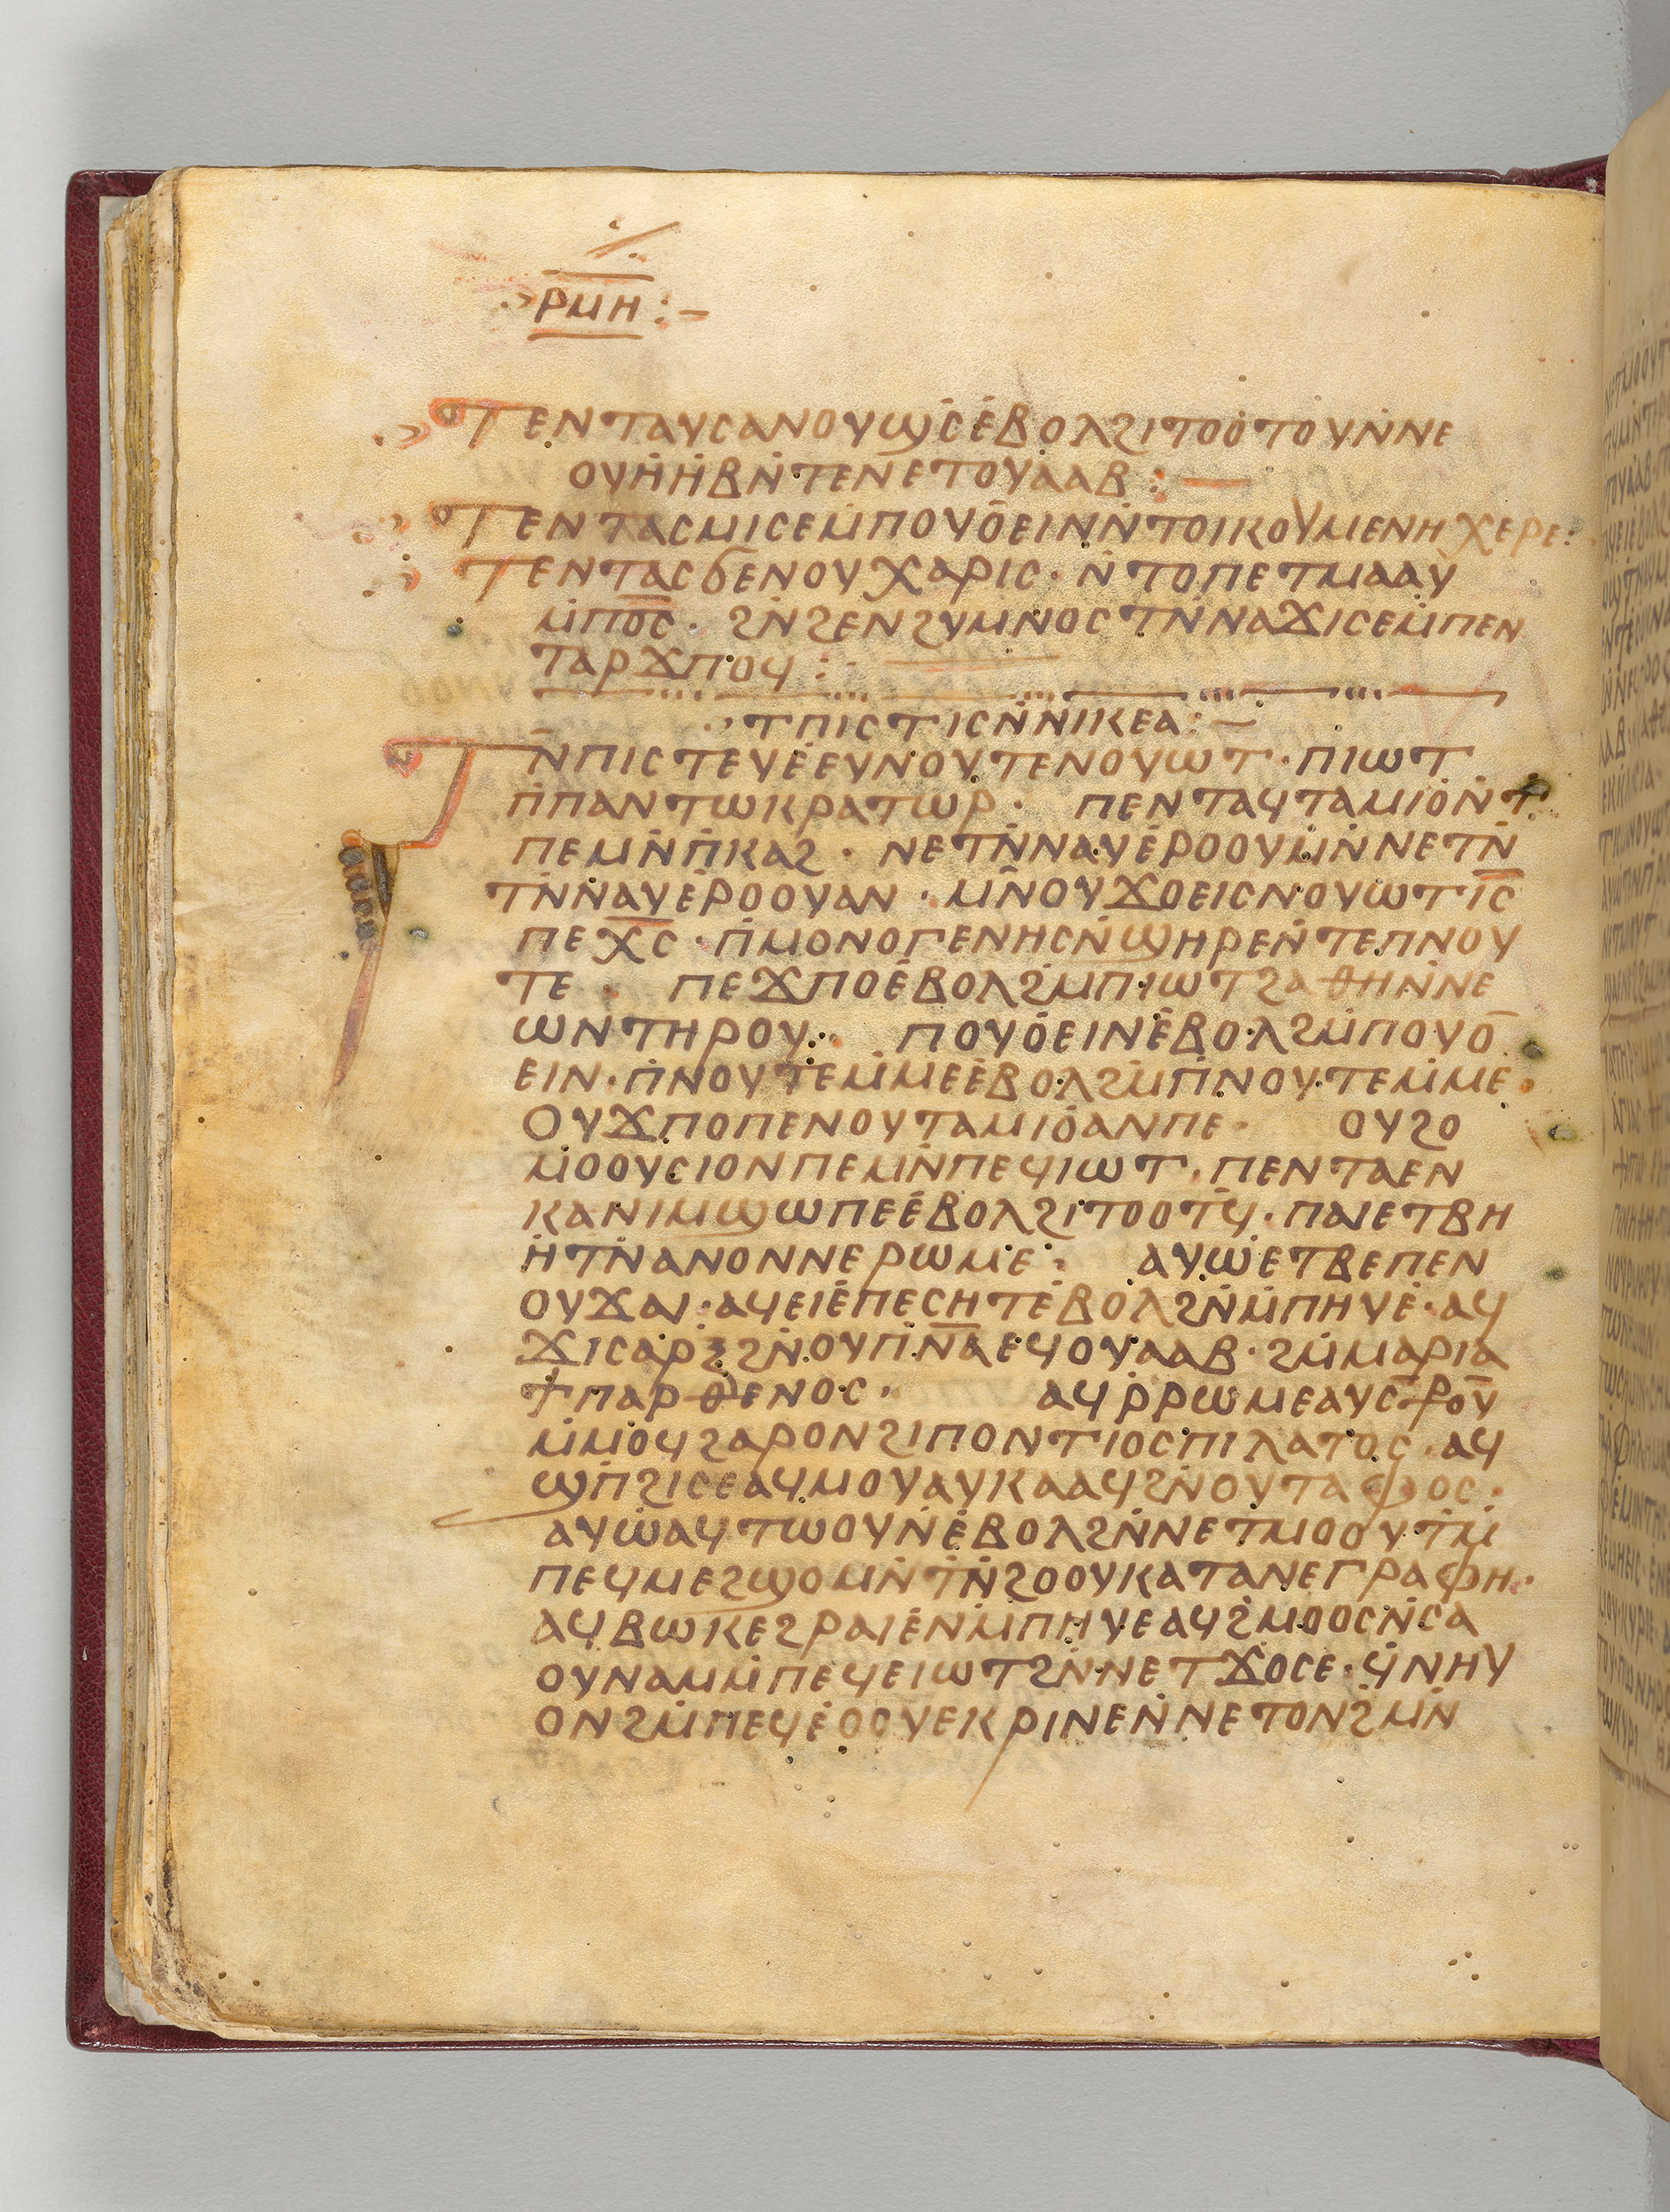 ⲣⲙⲏ:–
ⲧⲉⲛⲧⲁⲩⲥⲁⲛⲟⲩϣⲥ̇ⲉ̇ⲃⲟⲗϩⲓⲧⲟⲟ̇ⲧⲟⲩⲛ̇ⲛⲉ
ⲟⲩⲏ̇ⲏ̇ⲃⲛ̇ⲧⲉⲛⲉⲧⲟⲩⲁⲁⲃ:—
ⲧⲉⲛⲧⲁⲥⲙⲓⲥⲉⲙ̇ⲡⲟⲩⲟ̇ⲉⲓⲛⲛ̇ⲧⲟⲓⲕⲟⲩⲙⲉⲛⲏⲭⲉⲣⲉ:
ⲧⲉⲛⲧⲁⲥϭⲉⲛⲟⲩⲭⲁⲣⲓⲥ· ⲛ̇ⲧⲟⲡⲉⲧⲙⲁⲁⲩ
ⲙ̇ⲡⲟ̅ⲥ̅· ϩⲛ̇ϩⲉⲛϩⲩⲙⲛⲟⲥⲧⲛ̇ⲛⲁϫⲓⲥⲉⲙ̇ⲡⲉⲛ
ⲧⲁⲣϫⲡⲟϥ:
ⲧⲡⲓⲥⲧⲓⲥⲛ̇ⲛⲓⲕⲉⲁ:–
ⲧⲛ̅ⲡⲓⲥⲧⲉⲩⲉ̇ⲉⲩⲛⲟⲩⲧⲉⲛⲟⲩⲱⲧ·ⲡⲓⲱⲧ
ⲡ̇ⲡⲁⲛⲧⲱⲕⲣⲁⲧⲱⲣ· ⲡⲉⲛⲧⲁϥⲧⲁⲙⲓⲟ̇ⲛ̇ⲧ
ⲡⲉⲙⲛ̇ⲡ̇ⲕⲁϩ· ⲛⲉⲧⲛ̇ⲛⲁⲩⲉ̇ⲣⲟⲟⲩⲙⲛ̇ⲛⲉⲧⲛ̇
ⲧⲛ̇ⲛⲁⲩⲉ̇ⲣⲟⲟⲩⲁⲛ· ⲙⲛ̇ⲟⲩϫⲟⲉⲓⲥⲛⲟⲩⲱⲧⲓ̅ⲥ̅
ⲡⲉⲭ̅ⲥ̅·ⲡ̇ⲙⲟⲛⲟⲅⲉⲛⲏⲥⲛ̇ϣⲏⲣⲉⲛ̇ⲧⲉⲡⲛⲟⲩ
ⲧⲉ· ⲡⲉϫⲡⲟⲉ̇ⲃⲟⲗϩⲙ̇ⲡⲓⲱⲧϩⲁⲑⲏⲛ̇ⲛⲉ
ⲱⲛⲧⲏⲣⲟⲩ· ⲡⲟⲩⲟ̇ⲉⲓⲛⲉ̇ⲃⲟⲗϩⲙ̇ⲡⲟⲩⲟ̇
ⲉⲓⲛ·ⲡ̇ⲛⲟⲩⲧⲉⲙ̇ⲙⲉⲉ̇ⲃⲟⲗϩⲙ̇ⲡ̇ⲛⲟⲩⲧⲉⲙ̇ⲙⲉ·
ⲟⲩϫⲡⲟⲡⲉⲛⲟⲩⲧⲁⲙⲓⲟ̇ⲁⲛⲡⲉ· ⲟⲩϩⲟ
ⲙⲟⲟⲩⲥⲓⲟⲛⲡⲉⲙⲛ̇ⲡⲉϥⲓⲱⲧ·ⲡⲉⲛⲧⲁⲉⲛ
ⲕⲁⲛⲓⲙϣⲱⲡⲉⲉ̇ⲃⲟⲗϩⲓⲧⲟⲟⲧϥ̇·ⲡⲁⲓⲉⲧⲃⲏ
ⲏ̇ⲧⲛ̇ⲁⲛⲟⲛⲛⲉⲣⲱⲙⲉ: ⲁⲩⲱ̇ⲉⲧⲃⲉⲡⲉⲛ
ⲟⲩϫⲁⲓ·ⲁϥⲉⲓⲉ̇ⲡⲉⲥⲏⲧⲉ̇ⲃⲟⲗϩⲛ̇ⲙ̇ⲡⲏⲩⲉ̇·ⲁϥ
ϫⲓⲥⲁⲣⲝϩⲛ̇ⲟⲩⲡ̅ⲛ̅ⲁ̅ⲉϥⲟⲩⲁⲁⲃ·ϩⲙ̇ⲙⲁⲣⲓⲁ
ⲧⲡⲁⲣⲑⲉⲛⲟⲥ· ⲁϥⲣ̇ⲣⲱⲙⲉⲁⲩⲥ̅ⲣ̅ⲟⲩ
ⲙ̇ⲙⲟϥϩⲁⲣⲟⲛϩⲓⲡⲟⲛⲧⲓⲟⲥⲡⲓⲗⲁⲧⲟⲥ·ⲁϥ
ϣⲡ̇ϩⲓⲥⲉⲁϥⲙⲟⲩⲁⲩⲕⲁⲁϥϩⲛ̇ⲟⲩⲧⲁⲫⲟⲥ·
ⲁⲩⲱ̇ⲁϥⲧⲱⲟⲩⲛⲉ̇ⲃⲟⲗϩⲛ̇ⲛⲉⲧⲙⲟⲟⲩⲧϩⲙ̇
ⲡⲉϥⲙⲉϩϣⲟⲙⲛ̇ⲧⲛ̇ϩⲟⲟⲩⲕⲁⲧⲁⲛⲉⲅⲣⲁⲫⲏ·
ⲁϥⲃⲱⲕⲉϩⲣⲁⲓⲉ̇ⲛⲙ̇ⲡⲏⲩⲉⲁϥϩⲙⲟⲟⲥⲛ̇ⲥⲁ
ⲟⲩⲛⲁⲙⲙ̇ⲡⲉϥⲉⲓⲱⲧϩⲛ̇ⲛⲉⲧϫⲟⲥⲉ·ϥ̇ⲛⲏⲩ
ⲟⲛϩⲙ̇ⲡⲉϥⲉ̇ⲟⲟⲩⲉⲕⲣⲓⲛⲉⲛ̇ⲛⲉⲧⲟⲛϩⲙⲛ̇